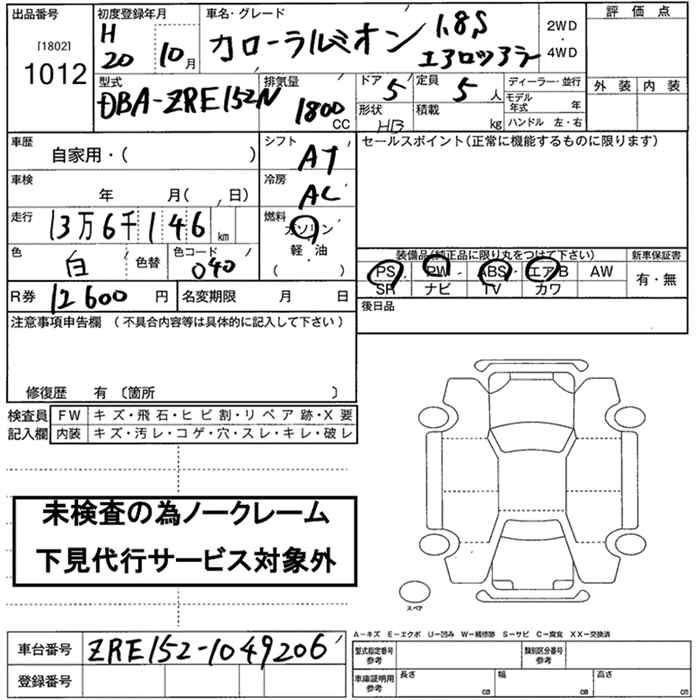 出品番号 初度登録年月 車名・グレード 2WD ・ 4WD 評価点
[1802] 1012 H 20 10月 カローラルミオン 1.8S エアロツアラー
外装 内装
型式 排気量 ドア 5 定員 5人 ディーラー・並行
DBA-ZRE152N 1800 CC 形状 HB 積載 kg モデル年式 年
ハンドル 左・右
車歴 自家用・( ) シフト AT セールスポイント(正常に機能するものに限ります)
車検 年 月( , 日) 冷房 AC
走行 13万6千146 km 燃料 ガソリン 軽・油 ・ ( )
色 白 色替 色コード 040
装備品(純正品に限り丸をつけて下さい) 新車保証書
PS PW ABS エアB AW 有・無
SR ナビ TV カワ
R券 12600 円 名変期限 月 日 後日品
注意事項申告欄 (不具合内容等は具体的に記入して下さい)
修復歴 有 〔箇所 〕
検査員 FW キズ・飛石・ヒビ割・リペア跡・X要
記入欄 内装 キズ・汚レ・コゲ・穴・スレ・キレ・破レ
未検査の為ノークレーム
下見代行サービス対象外
スペア
A−キズ E−エクボ U−凹み W−補修跡 S−サビ C−腐食 XX−交換済
車台番号 ZRE152-1049206 型式指定番号 参考 類別区分番号 参考
登録番号 車庫証明用 参考 長さ cm 幅 cm 高さ cm